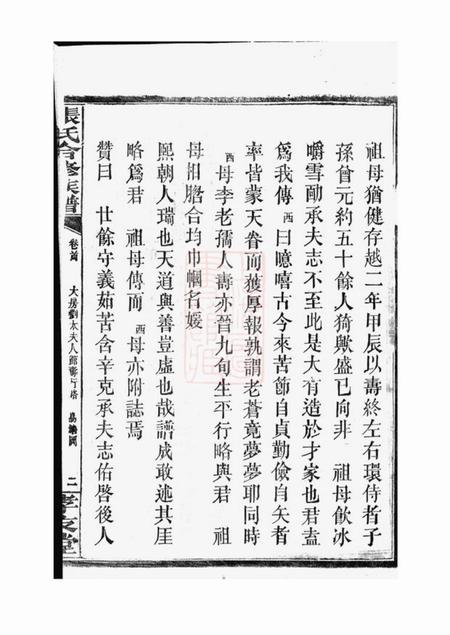 祖母猶健存越二年甲辰以壽終左右環侍者子
孫曾元約五十餘人猗歟盛已向非 祖母飲冰
嚼雪勵承夫志不至此是大有造於才家也君盍
為我傳 酉曰噫嘻古今來苦節自貞勤儉自矢者
率皆蒙天眷而獲厚報孰謂老蒼竟夢夢耶同時
酉母李老孺人壽亦晉九旬生平行略與君 祖
母相膽合均巾幗名媛
熙朝人瑞也天道與善豈虛也哉譜成敢述其厓
略為君 祖母傳而 酉母亦附誌焉
贊曰 廿餘守義茹苦含辛克承夫志佑啓後人
張氏合修族譜
卷首
大房劉太夫人館壽行塔
二
孝友堂